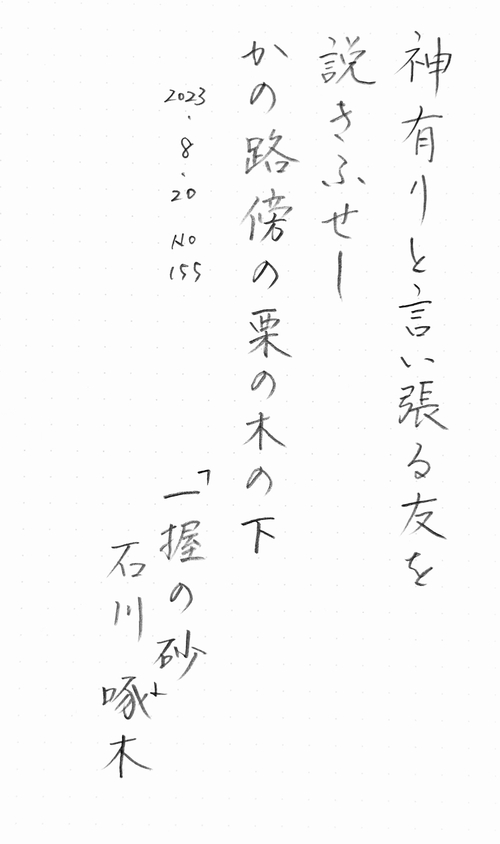 神有りと言い張る友を
説きふせし
かの路傍の栗の木の下
2023・8・20 No 155
「一握の砂」
石川啄木